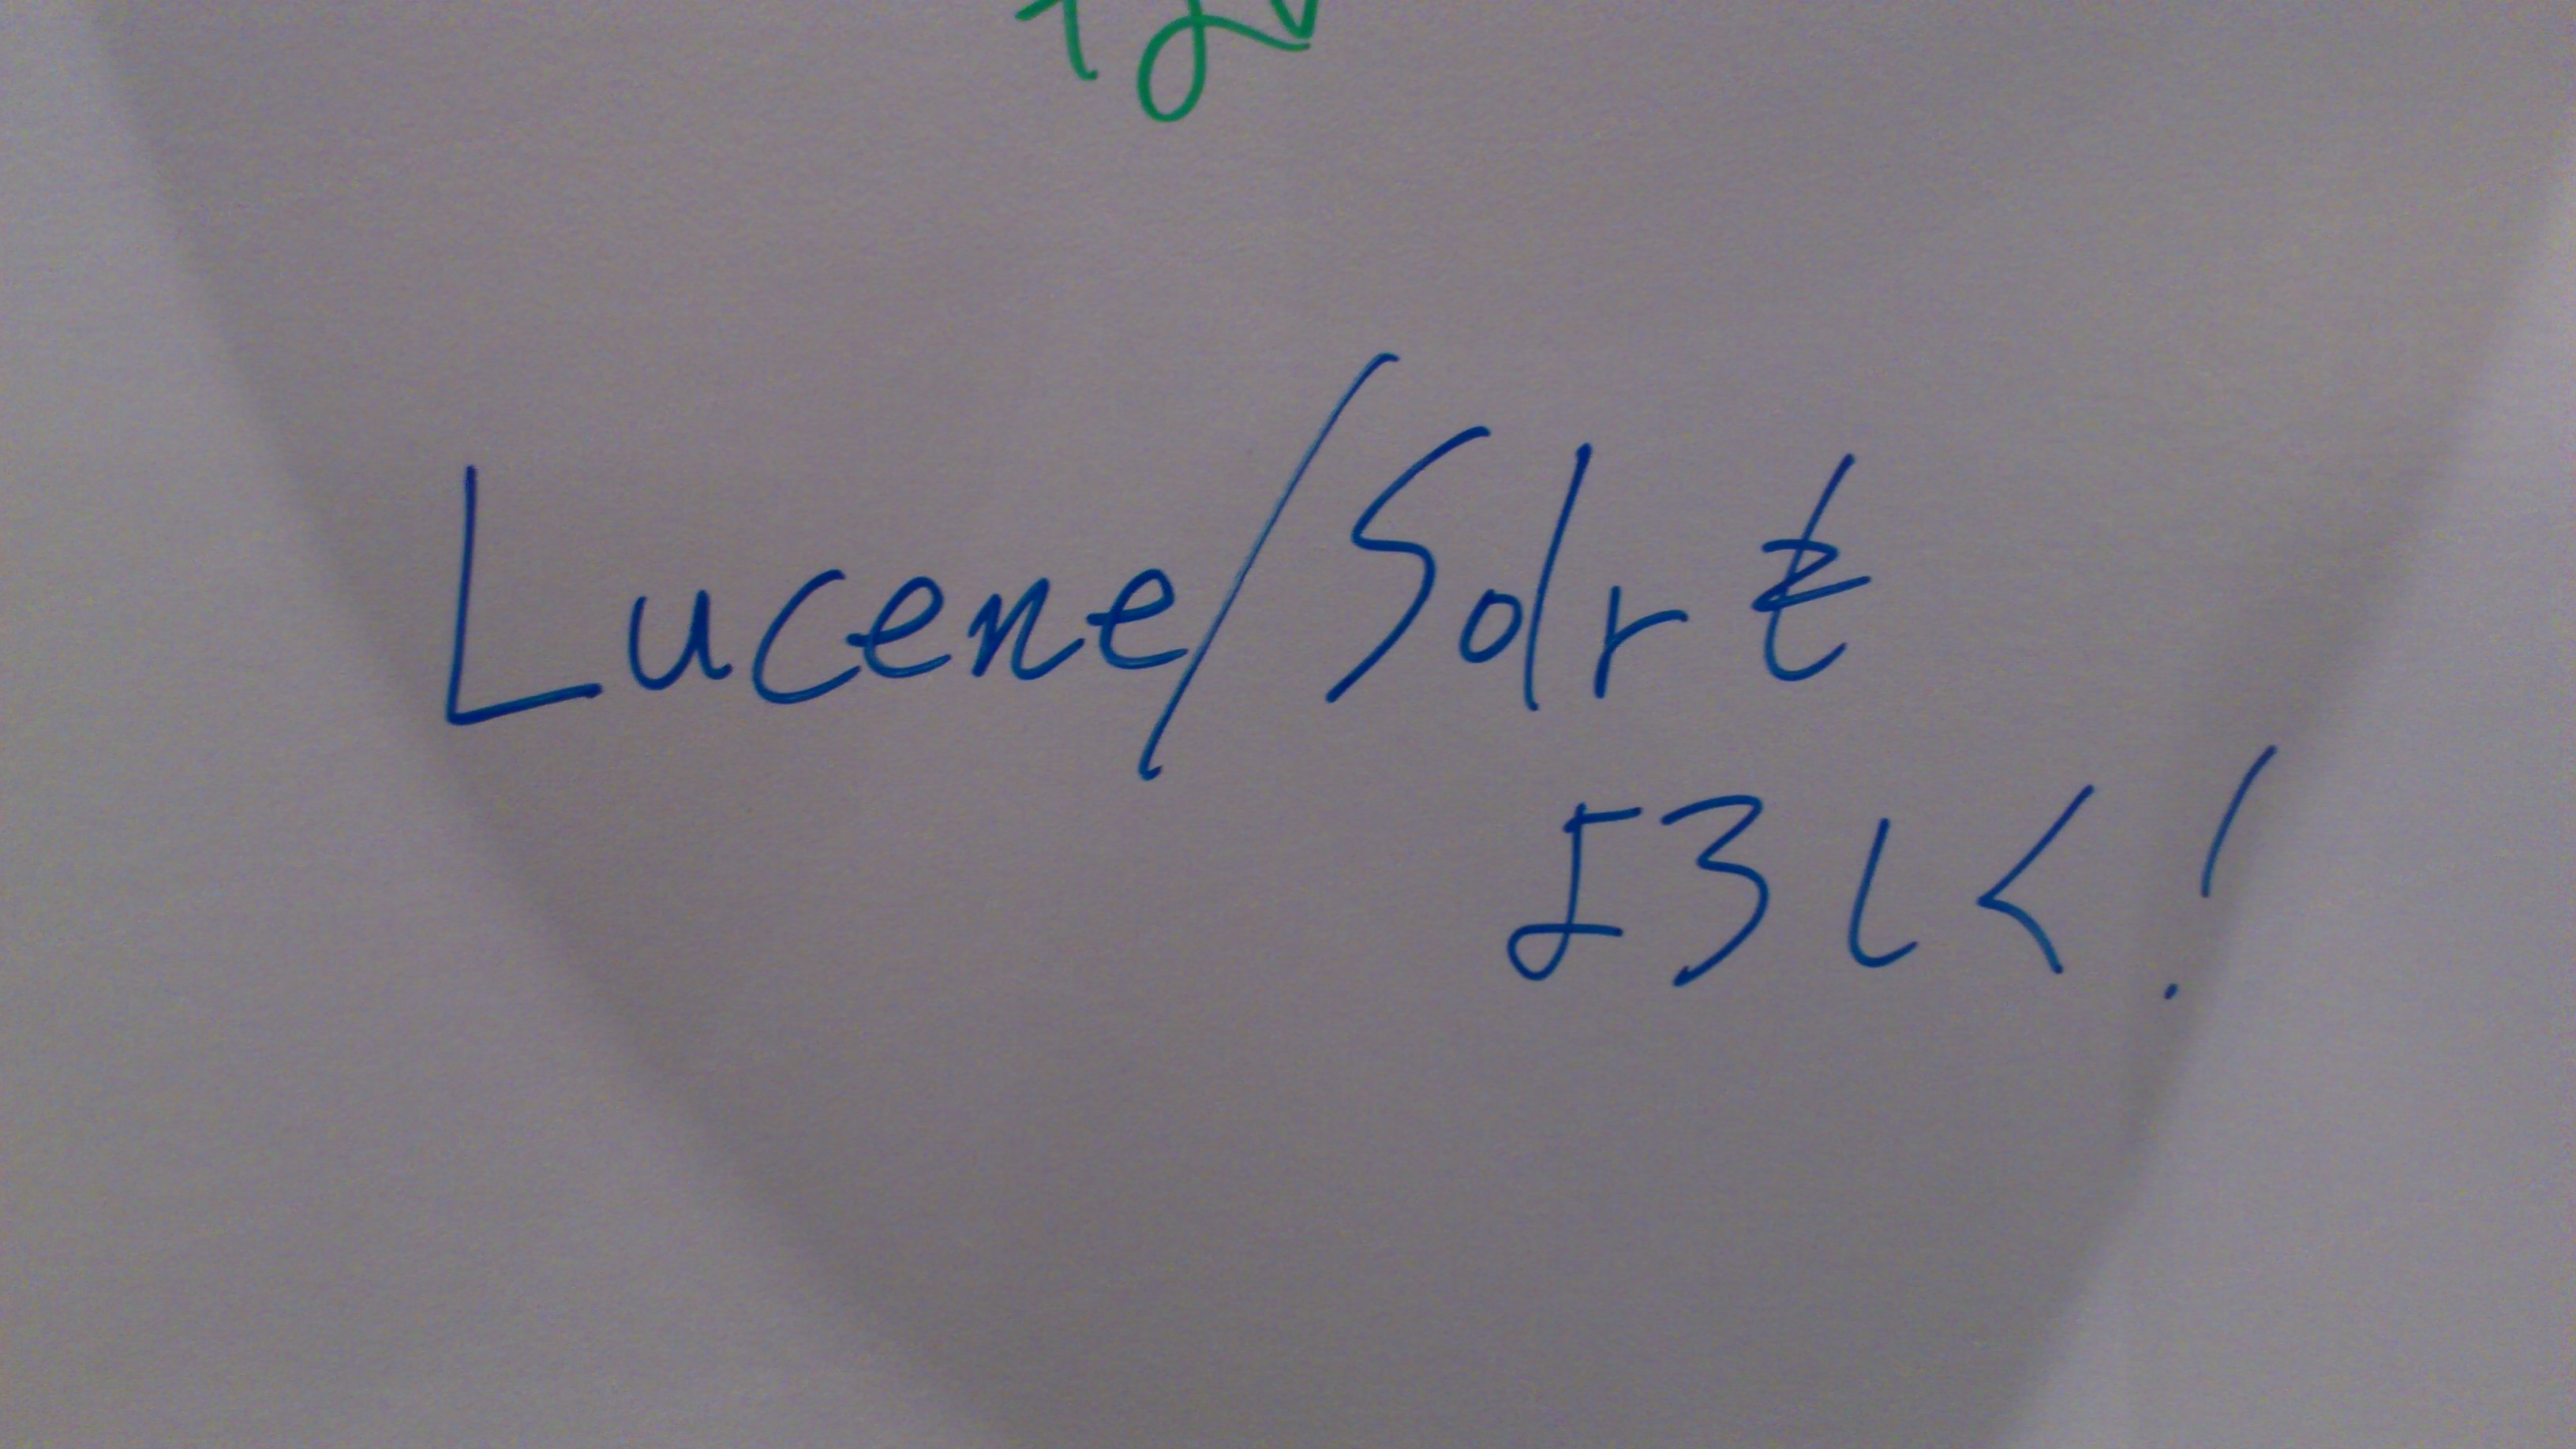 Lucene/Solrを
よろしく!